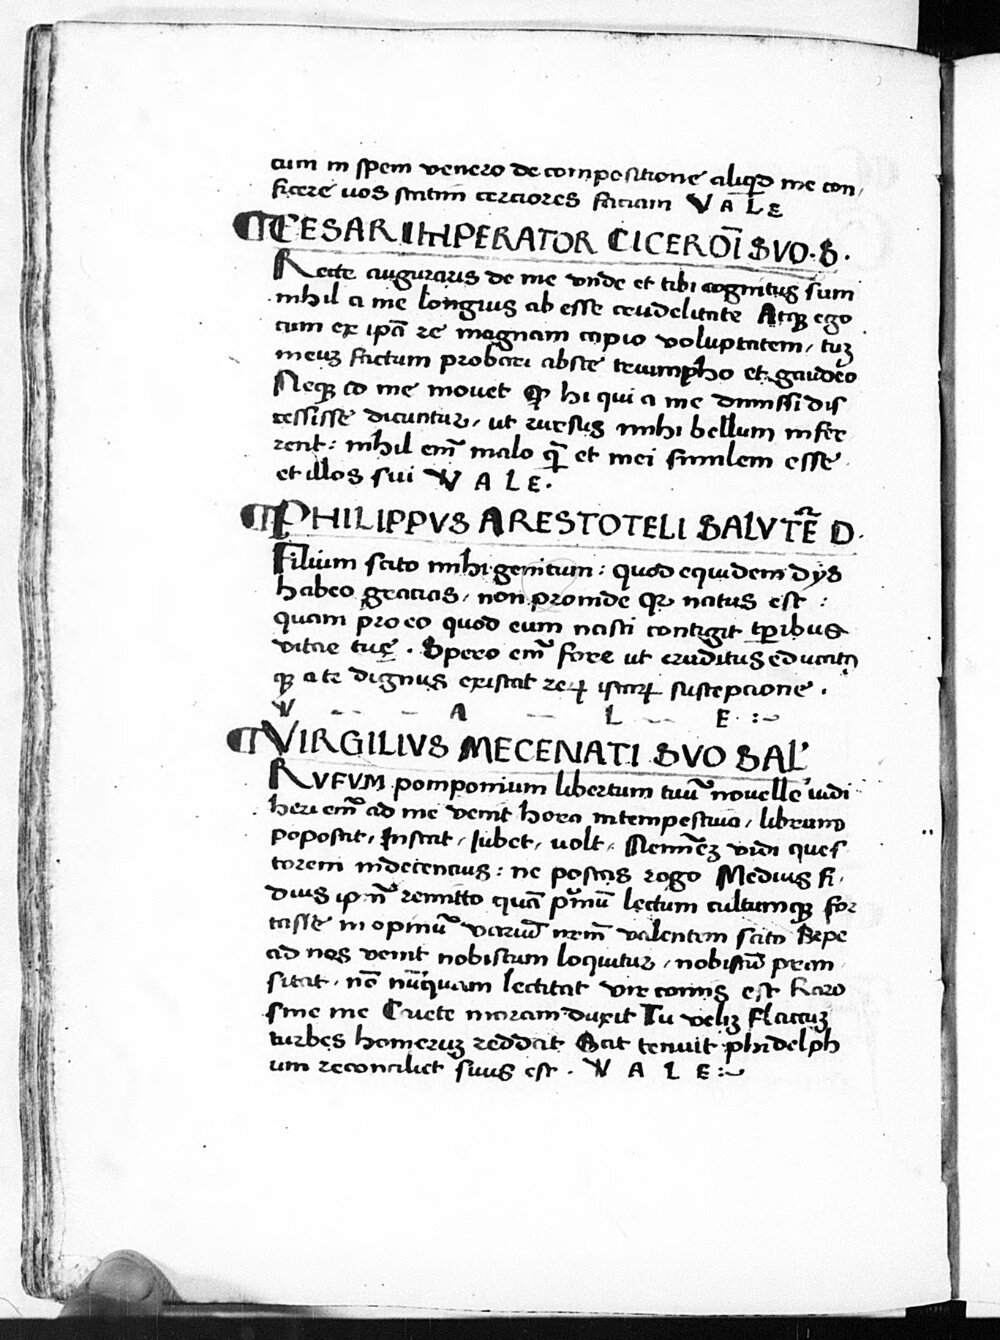 cum in spem venero de compositione aliqd me con,
ficere uos statim cerciores faciam VALE
CESAR IMPERATOR CICEROĪ SVO·S·
Recte auguraris de me vnde et tibi cognitus sum
nihil a me longius ab esse crudelitate Atqꝫ ego
cum ex ipā re magnam capio voluptatem, tuꝫ
meuꝫ factum probari abste triumpho et gaudeo
Neqꝫ eo me mouet qp hi qui a me dimissi dis
cessisse dicuntur, ut rursus mihi bellum infer
rent: nihil em̄ malo q̄ et mei similem esse
et illos sui VALE·
PHILIPPVS ARESTOTELI SALVTĒ D·
Filium scito mihi genitum: quod equidem dys
habeo gracias, non proinde qꝫ natus est:
quam pro eo quod eum nasci contigit tp̄ribus
vitae tuę. Spero em̄ fore ut eruditus educatꝯ
qꝫ a te dignus existat reꝝ istaꝝ susceptione.
V -- - A -- L -- E :~
VIRGILIVS MECENATI SVO SAL'
RVFVM pomponium libertum tuū nouelle uidi
heri em̄ ad me venit hora intempestiua, librum
poposcit, Instat, Iubet, uolt, Nemīeꝫ vidi ques
torem indecencius: ne poscas rogo Medius fi,
dius ip̄n̄ remitto quā pͥmū lectum cultumqꝫ for
tasse in opinū variū nr̄m valentem scito Sepe
ad nos venit nobiscum loquitur, nobiscū pran
sitat, nō nūquam lectitat vir comis est Raro
sine me Cuete moram duxit Tu velis Flaccuꝫ
turbes homeruꝫ reddat Gat tenuit phidelph
um reconaliet suus est. VALE:~